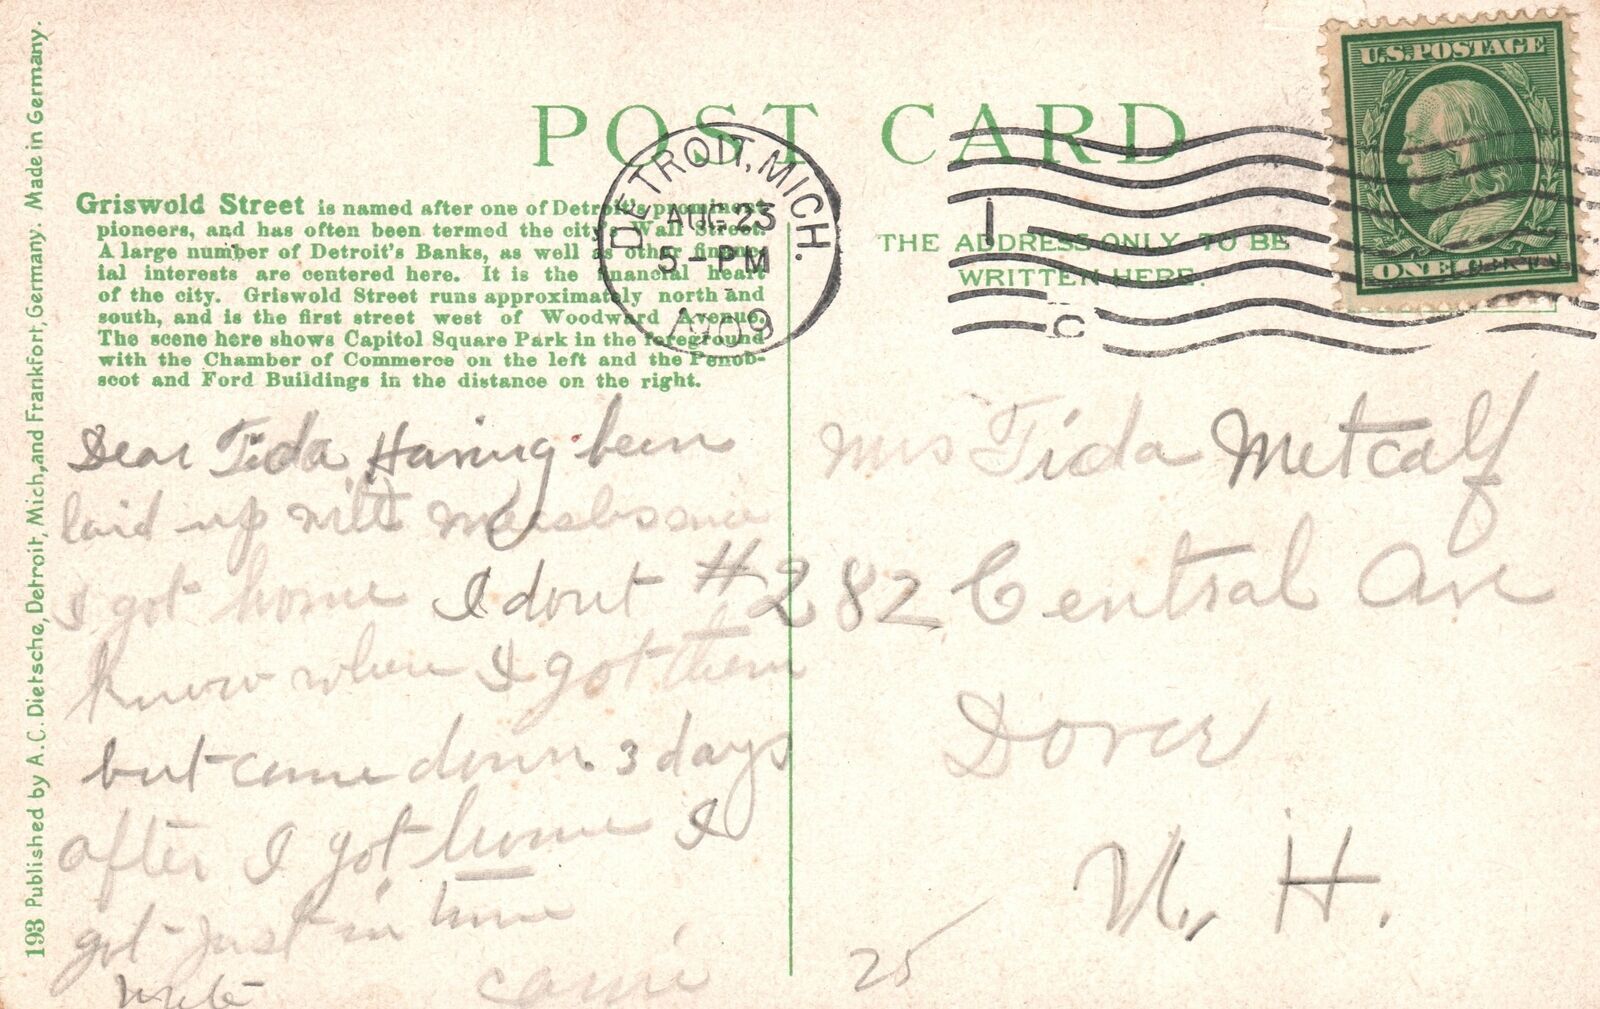 193 Published by A.C. Dietsche, Detroit, Mich, and Frankfort, Germany. Made in Germany.
POST CARD
Griswold Street is named after one of Detroit's prominent
pioneers, and has often been termed the city's Wall Street.
A large number of Detroit's Banks, as well as other financ-
ial interests are centered here. It is the financial heart
of the city. Griswold Street runs approximately north and
south, and is the first street west of Woodward Avenue.
The scene here shows Capitol Square Park in the foreground
with the Chamber of Commerce on the left and the Penob-
scot and Ford Buildings in the distance on the right.
DETROIT, MICH.
AUG 23
5-PM
1909
1
C
U.S. POSTAGE
ONE CENT
THE ADDRESS ONLY TO BE
WRITTEN HERE.
Dear Tida Having been
laid up with measles since
I got home I dont
know when I got them
but came down 3 days
after I got home I
got just in time
write
Mrs Tida Metcalf
#282 Central Ave
Dover
N. H.
25